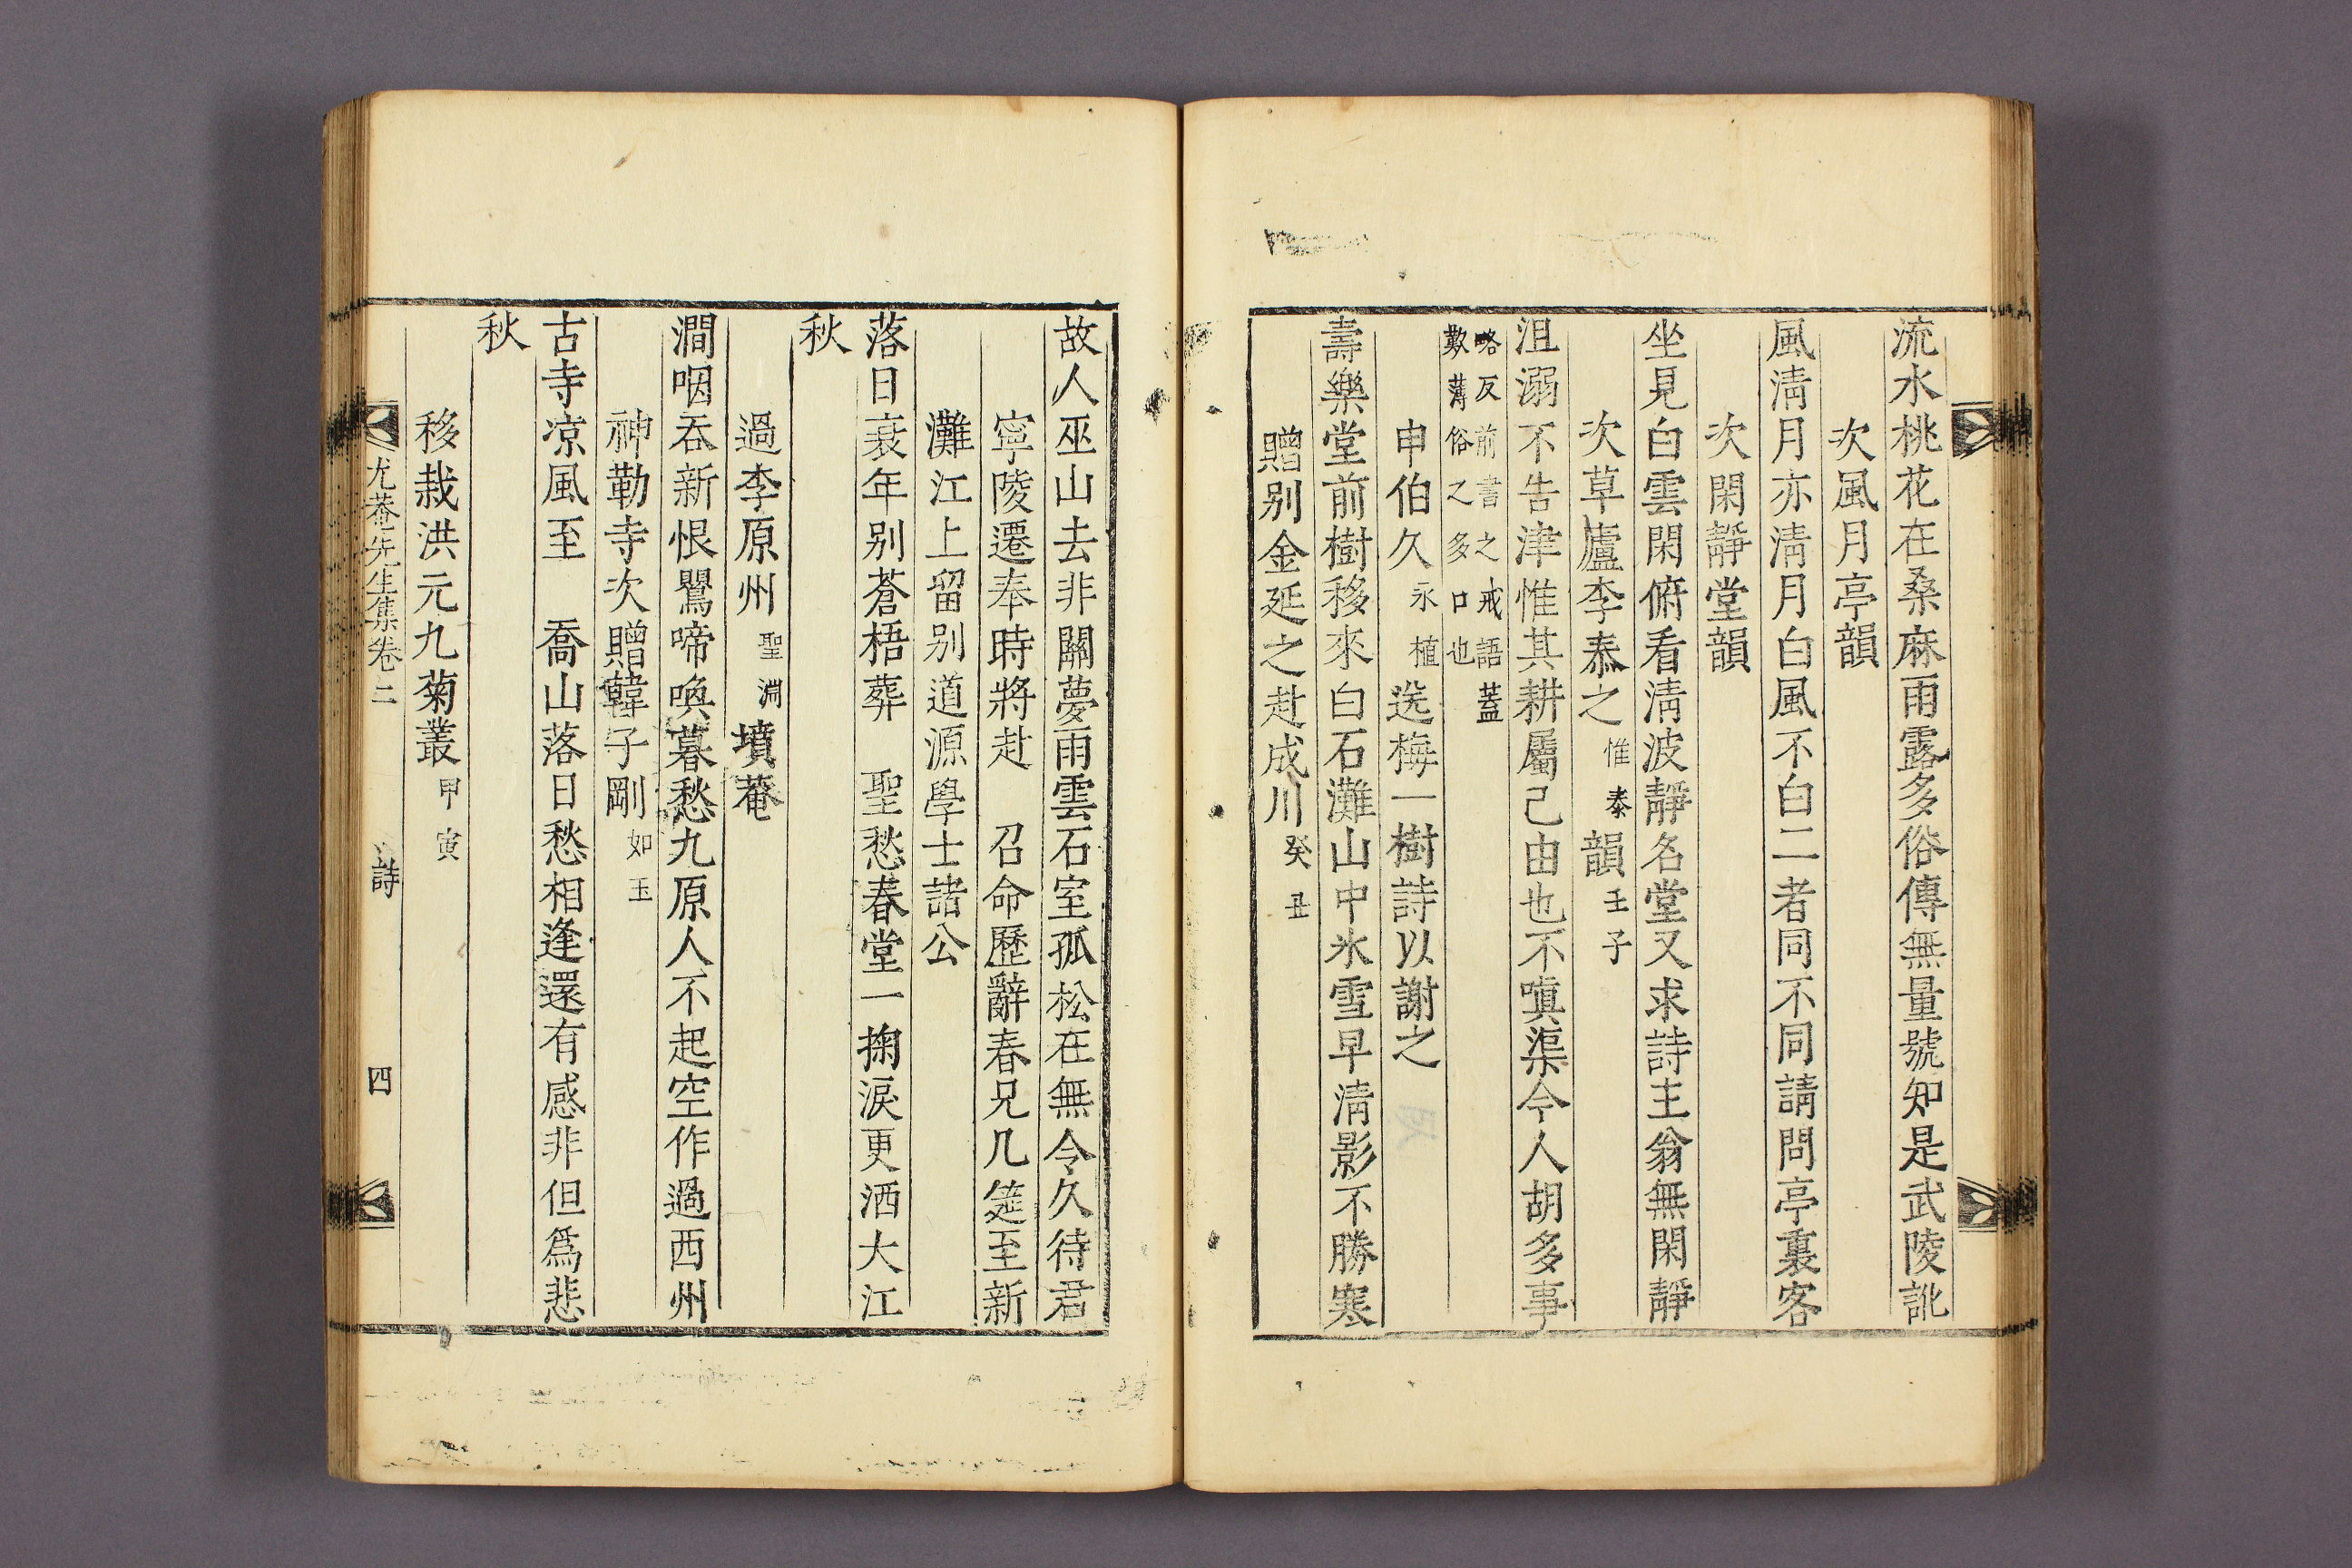 流水桃花在桑麻雨露多俗傳無量號知是武陵訛
次風月亭韻
風淸月亦淸月白風不白二者同不同請問亭裏客
次閑靜堂韻
坐見白雲閑俯看淸波靜名堂又求詩主翁無閑靜
次草廬李泰之惟泰韻壬子
沮溺不告津惟其耕屬己由也不嗔渠今人胡多事
略反前書之戒語蓋
歎薄俗之多口也
申伯久永植送梅一樹詩以謝之
壽樂堂前樹移來白石灘山中氷雪早淸影不勝寒
贈别金延之赴成川癸丑
故人巫山去非關夢雨雲石室孤松在無令久待君
寧陵遷奉時將赴 召命歷辭春兄几筵至新
灘江上留别道源學士諸公
落日衰年别蒼梧葬 聖愁春堂一掬淚更洒大江
秋
過李原州聖淵墳菴
澗咽呑新恨鸎啼喚暮愁九原人不起空作過西州
神勒寺次贈韓子剛如玉
古寺凉風至 喬山落日愁相逢還有感非但爲悲
秋
移栽洪元九菊叢甲寅
尤菴先生集卷二 詩 四